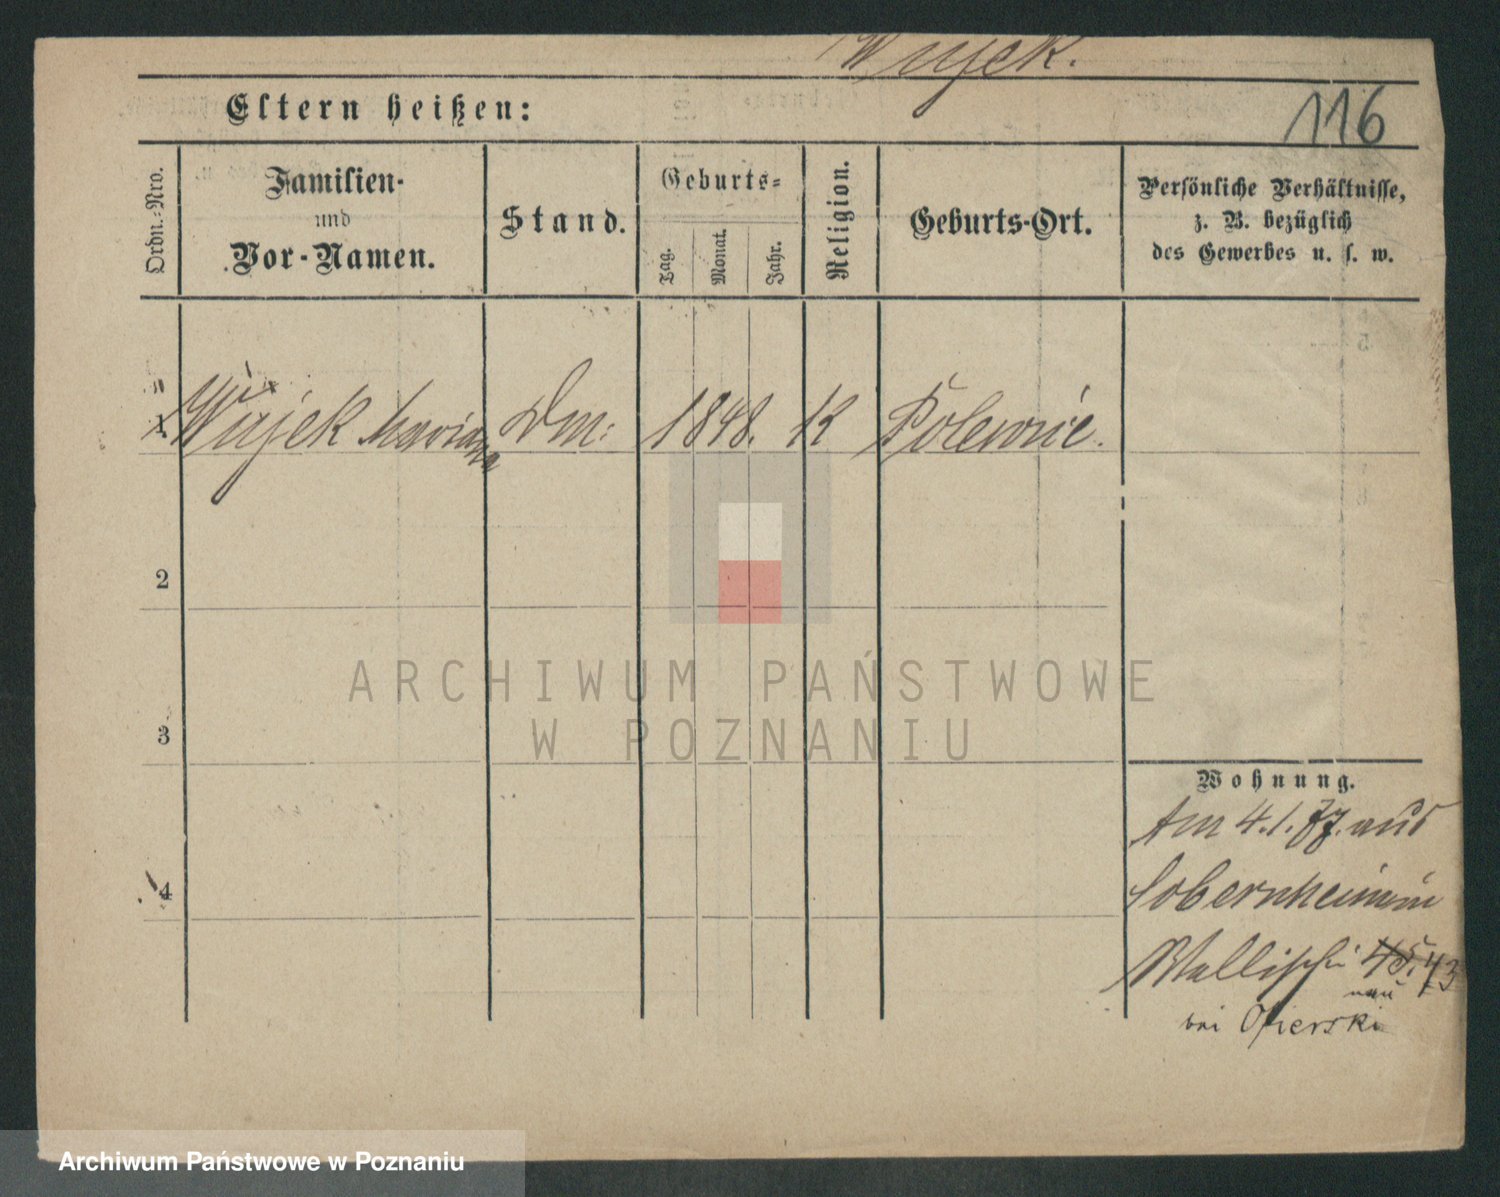 Wujek.
116
Eltern heißen:
Ordn.-Nro.
Familien-
und
Vor-Namen.
Stand.
Geburts-
Tag.
Monat.
Jahr.
Religion.
Geburts-Ort.
Persönliche Verhältnisse,
z. B. bezüglich
des Gewerbes u. s. w.
1. Wujek Mariana Dm: 1848. K
2
ARCHIWUM PAŃSTWOWE
W POZNANIU
3
Wohnung.
Am 4.1.77. aus
4
Wallischei 45. 43
neu
bei Ofierski
Archiwum Państwowe w Poznaniu